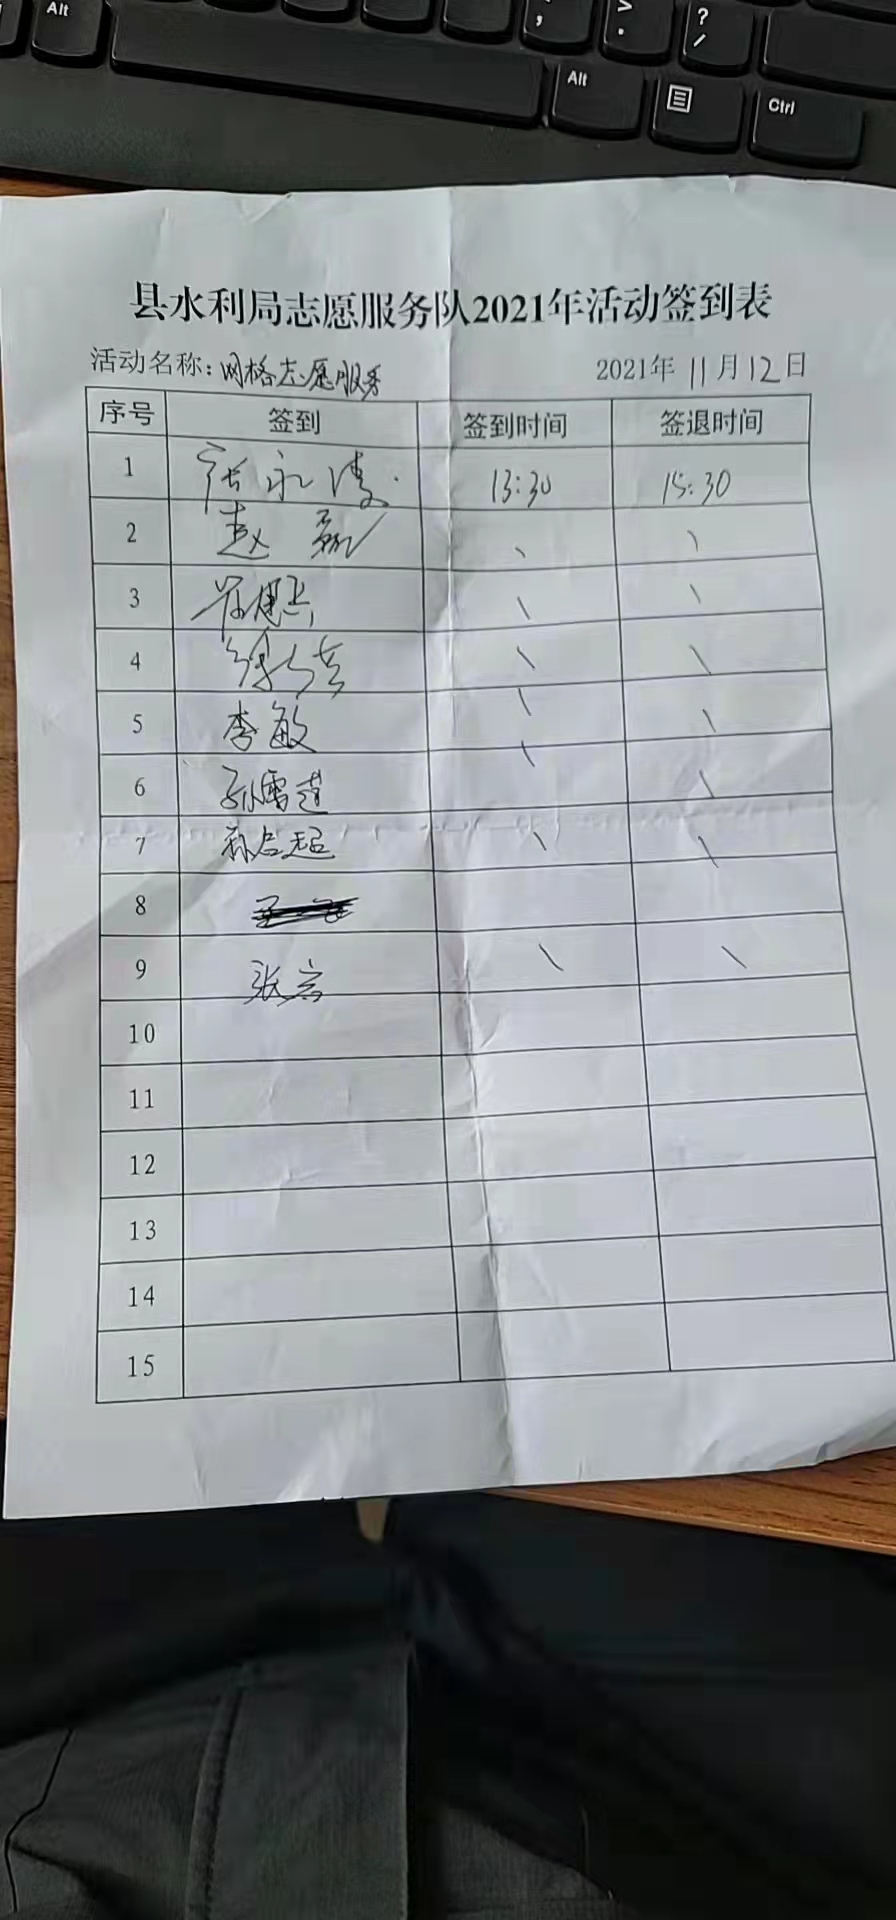 Alt
Alt
Ctrl
县水利局志愿服务队2021年活动签到表
活动名称:网格志愿服务 2021年11月12日
序号 签到 签到时间 签退时间
1 张永凌 13:30 15:30
2 赵 \ \
3 \ \
4 \ \
5 李敏 \ \
6 孙雷莲 \ \
7 孙启超 \ \
8
9 张宏 \ \
10
11
12
13
14
15